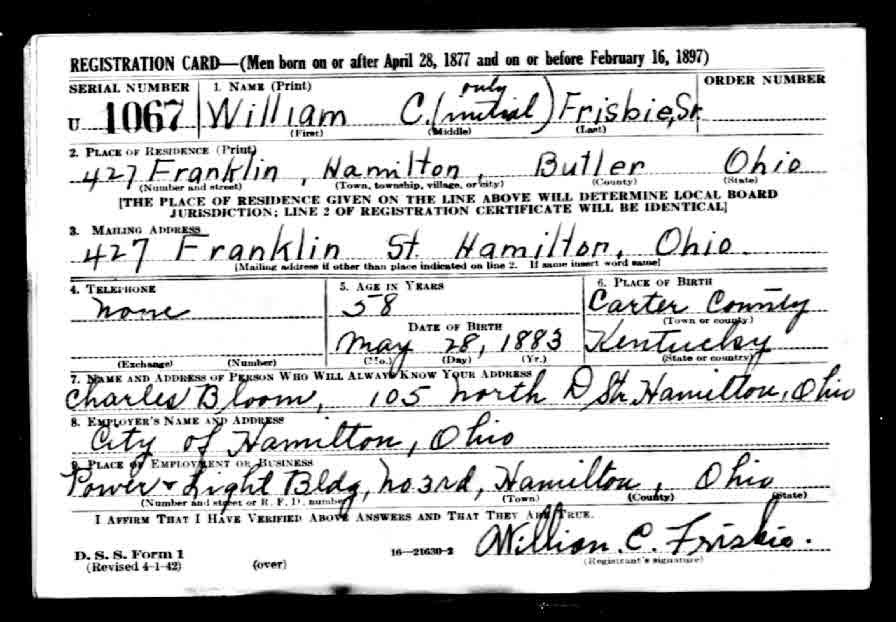 REGISTRATION CARD—(Men born on or after April 28, 1877 and on or before February 16, 1897)
SERIAL NUMBER 1. NAME (Print) ORDER NUMBER
U 1067 William C. (only initial) Frisbie, Sr.
(First) (Middle) (Last)
2. PLACE OF RESIDENCE (Print)
427 Franklin, Hamilton, Butler Ohio
(Number and street) (Town, township, village, or city) (County) (State)
[THE PLACE OF RESIDENCE GIVEN ON THE LINE ABOVE WILL DETERMINE LOCAL BOARD
JURISDICTION; LINE 2 OF REGISTRATION CERTIFICATE WILL BE IDENTICAL]
3. MAILING ADDRESS
427 Franklin St. Hamilton, Ohio.
[Mailing address if other than place indicated on line 2. If same insert word same]
4. TELEPHONE 5. AGE IN YEARS 6. PLACE OF BIRTH
None 58 Carter County
(Town or county)
DATE OF BIRTH
May 28, 1883 Kentucky
(Exchange) (Number) (Mo.) (Day) (Yr.) (State or country)
7. NAME AND ADDRESS OF PERSON WHO WILL ALWAYS KNOW YOUR ADDRESS
Charles Bloom, 105 North D Str. Hamilton, Ohio
8. EMPLOYER'S NAME AND ADDRESS
City of Hamilton, Ohio
9. PLACE OF EMPLOYMENT OR BUSINESS
Power & Light Bldg, No 3rd, Hamilton, Ohio
(Number and street or R. F. D. number) (Town) (County) (State)
I AFFIRM THAT I HAVE VERIFIED ABOVE ANSWERS AND THAT THEY ARE TRUE.
D. S. S. Form 1 16—21630-2 William. C. Frisbie.
(Revised 4-1-42) (over) (Registrant's signature)